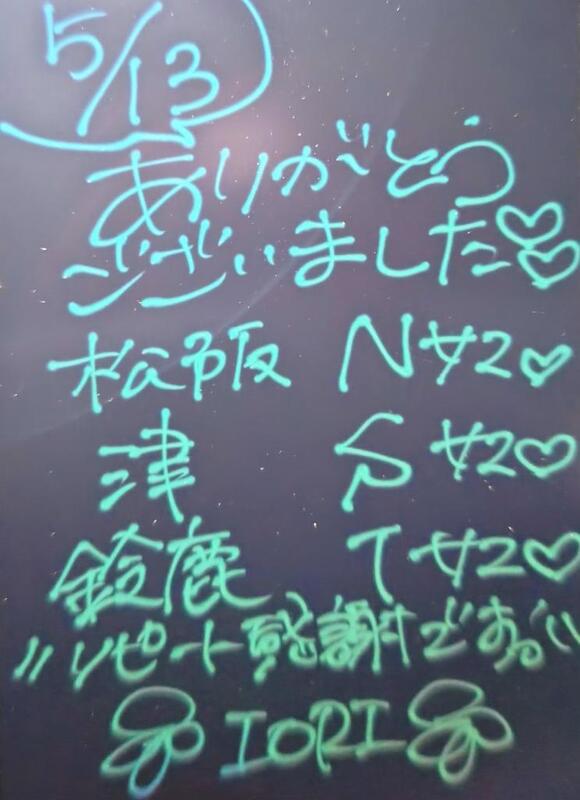 5/13
ありがとう
ございました♡♡
松阪 Nサマ♡
津 Sサマ♡
鈴鹿 Tサマ♡
"リピート感謝です"
IORI